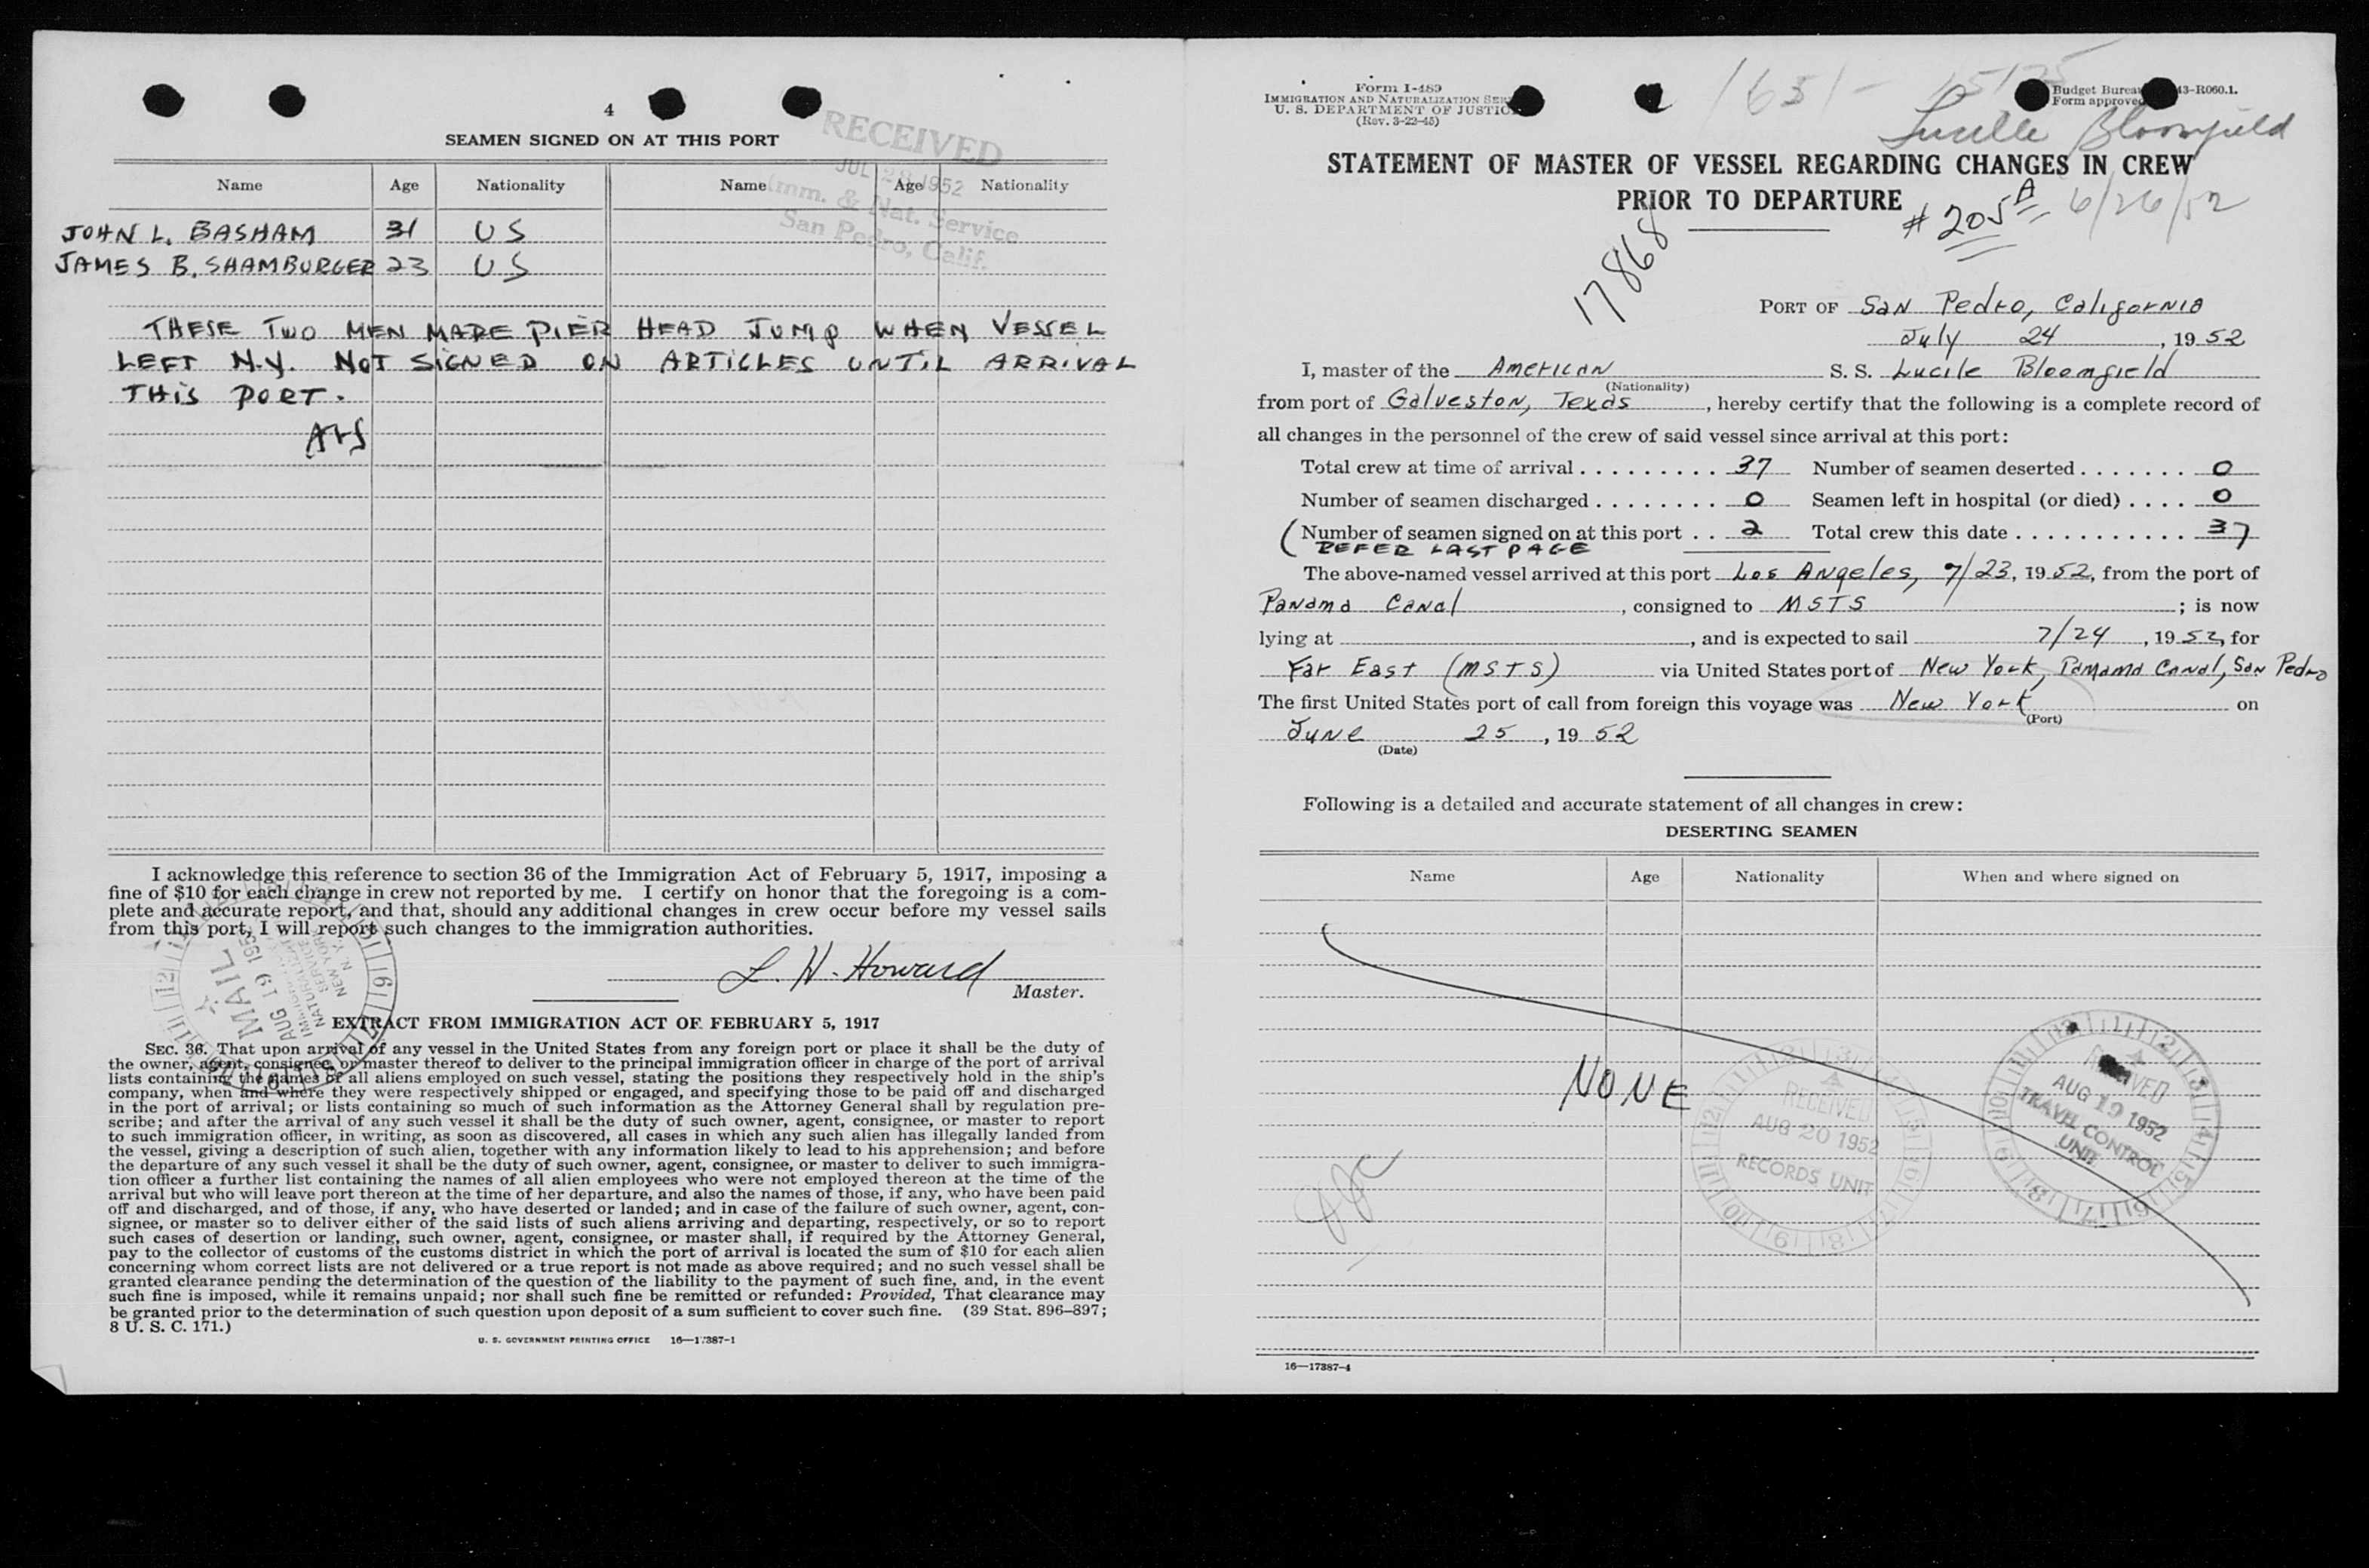 4
SEAMEN SIGNED ON AT THIS PORT
RECEIVED
JUL 28 1952
Imm. & Nat. Service
San Pedro, Calif.
Name Age Nationality Name Age Nationality
JOHN L. BASHAM 31 US
JAMES B. SHAMBURGER 23 US
THESE TWO MEN MADE PIER HEAD JUMP WHEN VESSEL
LEFT N.Y. NOT SIGNED ON ARTICLES UNTIL ARRIVAL
THIS PORT.
I acknowledge this reference to section 36 of the Immigration Act of February 5, 1917, imposing a
fine of $10 for each change in crew not reported by me. I certify on honor that the foregoing is a com-
plete and accurate report, and that, should any additional changes in crew occur before my vessel sails
from this port, I will report such changes to the immigration authorities.
L. H. Howard
Master.
MAIL
AUG 19 195
EXTRACT FROM IMMIGRATION ACT OF FEBRUARY 5, 1917
SEC. 36. That upon arrival of any vessel in the United States from any foreign port or place it shall be the duty of
the owner, agent, consignee, or master thereof to deliver to the principal immigration officer in charge of the port of arrival
lists containing the names of all aliens employed on such vessel, stating the positions they respectively hold in the ship's
company, when and where they were respectively shipped or engaged, and specifying those to be paid off and discharged
in the port of arrival; or lists containing so much of such information as the Attorney General shall by regulation pre-
scribe; and after the arrival of any such vessel it shall be the duty of such owner, agent, consignee, or master to report
to such immigration officer, in writing, as soon as discovered, all cases in which any such alien has illegally landed from
the vessel, giving a description of such alien, together with any information likely to lead to his apprehension; and before
the departure of any such vessel it shall be the duty of such owner, agent, consignee, or master to deliver to such immigra-
tion officer a further list containing the names of all alien employees who were not employed thereon at the time of the
arrival but who will leave port thereon at the time of her departure, and also the names of those, if any, who have been paid
off and discharged, and of those, if any, who have deserted or landed; and in case of the failure of such owner, agent, con-
signee, or master so to deliver either of the said lists of such aliens arriving and departing, respectively, or so to report
such cases of desertion or landing, such owner, agent, consignee, or master shall, if required by the Attorney General,
pay to the collector of customs of the customs district in which the port of arrival is located the sum of $10 for each alien
concerning whom correct lists are not delivered or a true report is not made as above required; and no such vessel shall be
granted clearance pending the determination of the question of the liability to the payment of such fine, and, in the event
such fine is imposed, while it remains unpaid; nor shall such fine be remitted or refunded: Provided, That clearance may
be granted prior to the determination of such question upon deposit of a sum sufficient to cover such fine. (39 Stat. 896–897;
8 U. S. C. 171.)
U. S. GOVERNMENT PRINTING OFFICE 16—17387-1
Form I-489
IMMIGRATION AND NATURALIZATION SER
U. S. DEPARTMENT OF JUSTIC
(Rev. 3-22-45)
Budget Burea 43-R060.1.
Form approved
Lucille Bloomfield
STATEMENT OF MASTER OF VESSEL REGARDING CHANGES IN CREW
PRIOR TO DEPARTURE
# 205 A 6/26/52
17868
PORT OF San Pedro, California
July 24, 19 52
I, master of the American S. S. Lucile Bloomfield
(Nationality)
from port of Galveston, Texas, hereby certify that the following is a complete record of
all changes in the personnel of the crew of said vessel since arrival at this port:
Total crew at time of arrival 37 Number of seamen deserted 0
Number of seamen discharged 0 Seamen left in hospital (or died) 0
(Number of seamen signed on at this port 2 Total crew this date 37
REFER LAST PAGE
The above-named vessel arrived at this port Los Angeles, 7/23, 19 52, from the port of
Panama Canal, consigned to MSTS; is now
lying at , and is expected to sail 7/24, 19 52, for
Far East (MSTS) via United States port of New York, Panama Canal, San Pedro
The first United States port of call from foreign this voyage was New York on
(Port)
June 25, 19 52
(Date)
Following is a detailed and accurate statement of all changes in crew:
DESERTING SEAMEN
Name Age Nationality When and where signed on
NONE
RECEIVED
AUG 20 1952
RECORDS UNIT
RECEIVED
AUG 19 1952
TRAVEL CONTROL
UNIT
16—17387-4